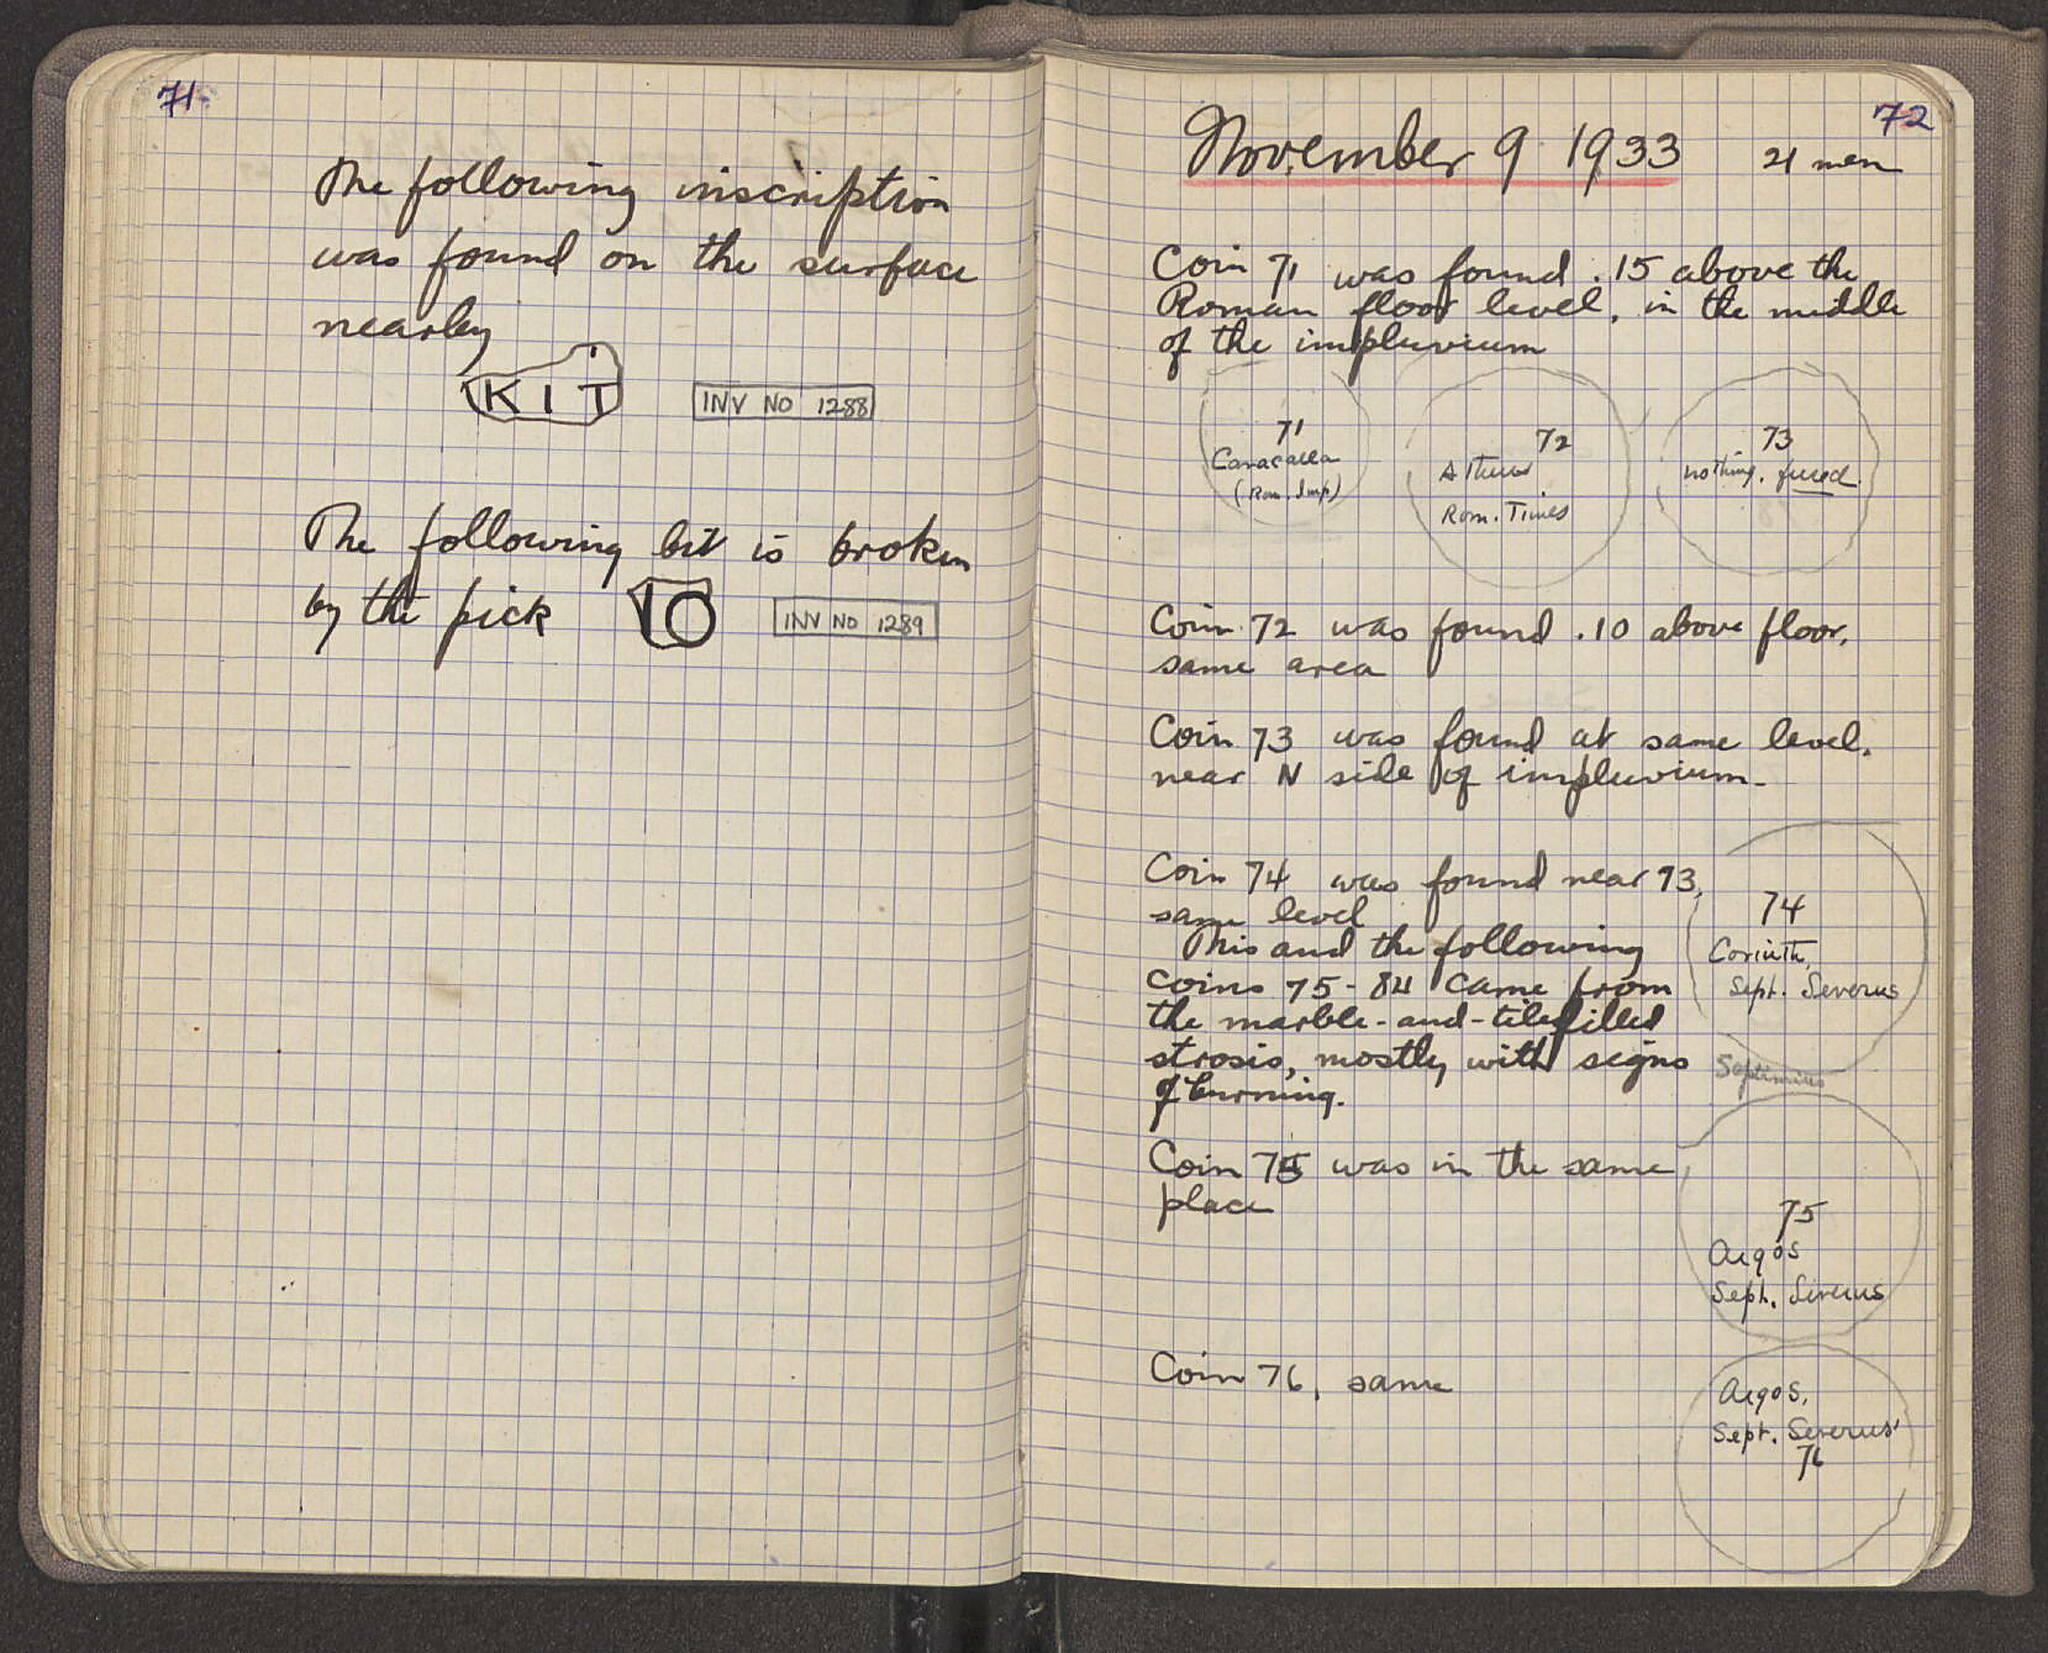 71
The following inscription
was found on the surface
nearby
KIT
INV NO 1288
The following bit is broken
by the pick
IO
INV NO 1289
72
November 9 1933 21 men
Coin 71 was found .15 above the
Roman floor level, in the middle
of the impluvium
71
Caracalla
(Rom. Imp)
72
Athens
Rom. Times
73
nothing. fused.
Coin 72 was found .10 above floor,
same area
Coin 73 was found at same level,
near N side of impluvium-
Coin 74 was found near 73,
same level
This and the following
coins 75-84 came from
the marble-and-tile filled
strosis, mostly with signs
of burning.
74
Corinth,
Sept. Severus
Septimius
Coin 75 was in the same
place
75
Argos
Sept. Severus
Coin 76, same
Argos,
Sept. Severus
76